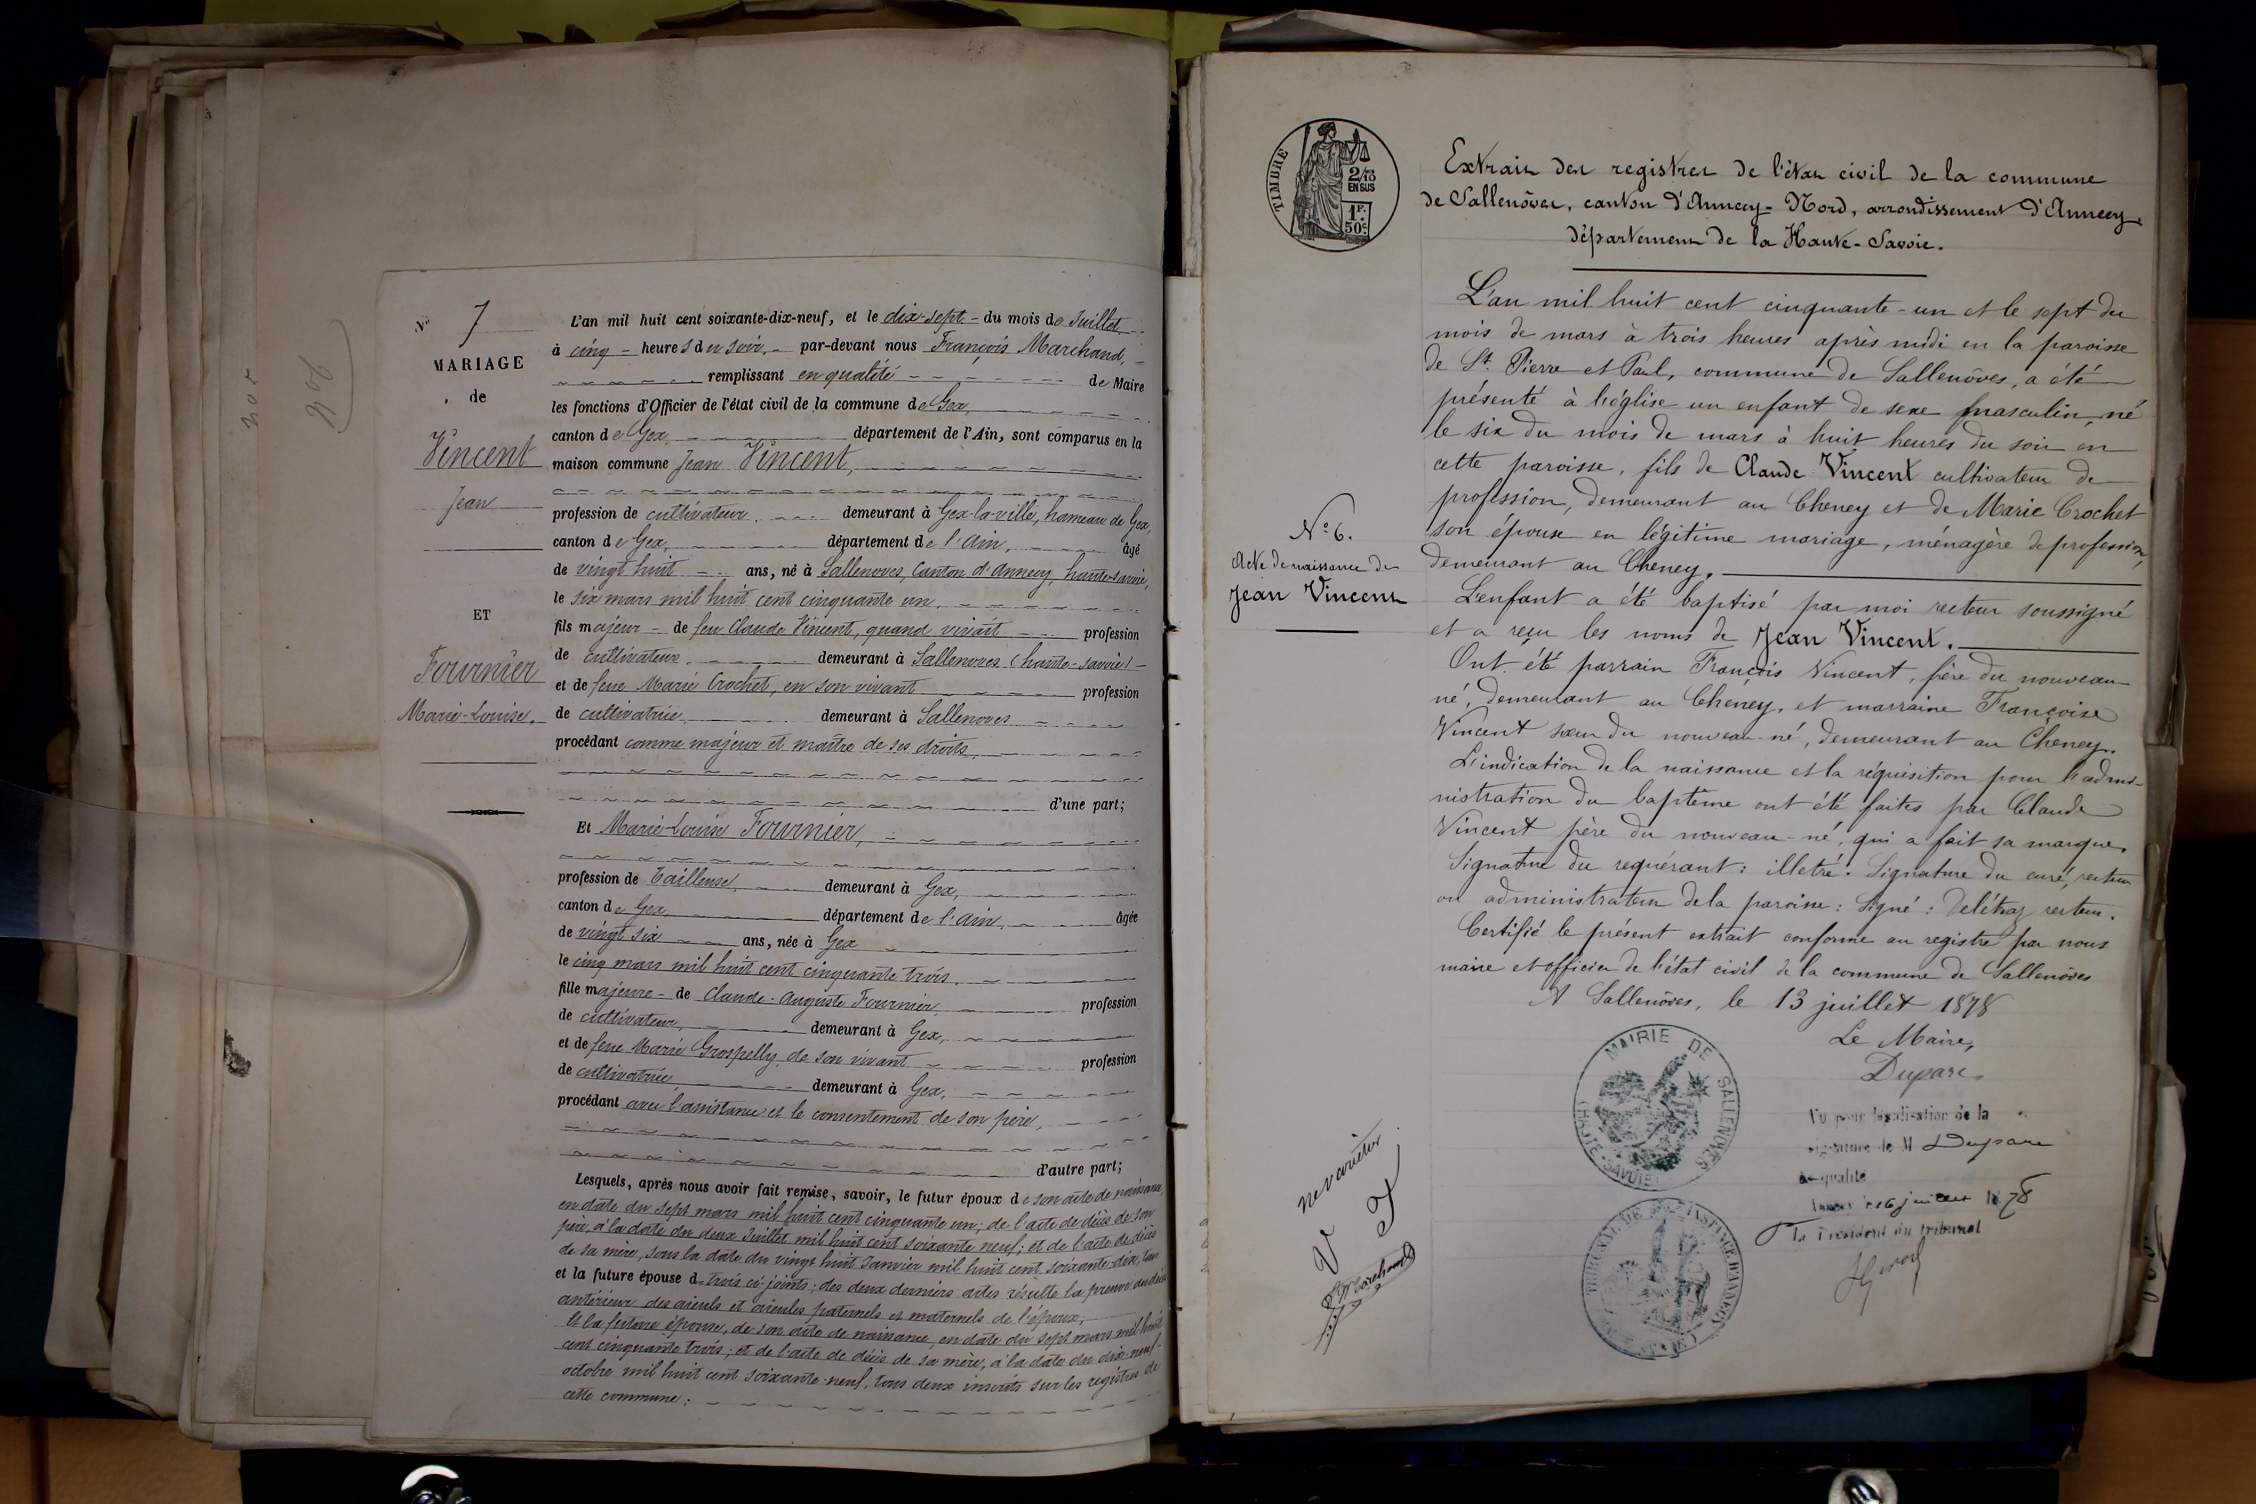 N° 7
MARIAGE
de
Vincent
Jean
ET
Fournier
Marie-Louise.
L'an mil huit cent soixante-dix-neuf, et le dix-sept du mois de Juillet
à cinq heures du soir, par-devant nous François Marchand,
remplissant en qualité de Maire
les fonctions d'Officier de l'état civil de la commune de Gex,
canton de Gex, département de l'Ain, sont comparus en la
maison commune Jean Vincent,
profession de cultivateur, demeurant à Gex-la-ville, hameau de Gex,
canton de Gex, département de l'Ain, âgé
de vingt huit ans, né à Sallenoves, Canton d'Annecy, haute-savoie,
le six mars mil huit cent cinquante un,
fils majeur de feu Claude Vincent, quand vivait profession
de cultivateur, demeurant à Sallenoves (haute-savoie)
et de feue Marie Crochet, en son vivant profession
de cultivatrice demeurant à Sallenoves
procédant comme majeur et maître de ses droits.
d'une part;
Et Marie-Louise Fournier,
profession de Tailleuse, demeurant à Gex,
canton de Gex, département de l'Ain, âgée
de vingt six ans, née à Gex
le cinq mars mil huit cent cinquante trois,
fille majeure de Claude-Auguste Fournier, profession
de cultivateur, demeurant à Gex,
et de feue Marie Grospelly, de son vivant profession
de cultivatrice, demeurant à Gex,
procédant avec l'assistance et le consentement de son père,
d'autre part;
Lesquels, après nous avoir fait remise, savoir, le futur époux de son acte de naissance
en date du sept mars mil huit cent cinquante un; de l'acte de décès de son
père, à la date du deux Juillet mil huit cent soixante neuf; et de l'acte de décès
de sa mère, sous la date du vingt huit Janvier mil huit cent soixante-dix, tous
et la future épouse d trois ci-joints; des deux derniers actes résulte la preuve du décès
antérieur des aïeuls et aïeules paternels et maternels de l'époux;
Et la future épouse, de son acte de naissance, en date du sept mars mil huit
cent cinquante trois; et de l'acte de décès de sa mère, à la date du dix-neuf
octobre mil huit cent soixante-neuf, tous deux inscrits sur les registres de
cette commune;
TIMBRE
2/10
EN SUS
1F.
50c
Extrait des registres de l'état civil de la commune
de Sallenôves, canton d'Annecy-Nord, arrondissement d'Annecy,
département de la Haute-Savoie.
N° 6.
Acte de naissance de
Jean Vincent
L'an mil huit cent cinquante-un et le sept du
mois de mars à trois heures après midi en la paroisse
de St. Pierre et Paul, commune de Sallenôves, a été
présenté à l'église un enfant de sexe masculin, né
le six du mois de mars à huit heures du soir en
cette paroisse, fils de Claude Vincent cultivateur de
profession, demeurant au Cheney et de Marie Crochet
son épouse en légitime mariage, ménagère de profession,
demeurant au Cheney.
L'enfant a été baptisé par moi recteur soussigné
et a reçu les noms de Jean Vincent.
Ont été parrain François Vincent, frère du nouveau-
né, demeurant au Cheney, et marraine Françoise
Vincent sœur du nouveau-né, demeurant au Cheney.
L'indication de la naissance et la réquisition pour l'admi-
nistration du baptême ont été faites par Claude
Vincent père du nouveau-né, qui a fait sa marque.
Signature du requérant: illetré. Signature du curé, recteur
ou administrateur de la paroisse: Signé: Delétraz recteur.
Certifié le présent extrait conforme au registre par nous
maire et officier de l'état civil de la commune de Sallenôves
A Sallenôves, le 13 juillet 1878
Le Maire,
Duparc
MAIRIE DE SALLENOVES
HAUTE-SAVOIE
Vu pour légalisation de la
signature de M Duparc
qualité
16 juillet 1878
Le Président du tribunal
TRIBUNAL DE INSTANCE D'ANNECY
ne varietur
V F
Marchand